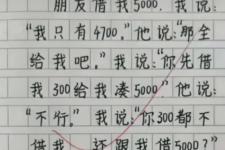 朋友借我5000.我说:
"我只有4700."他说:"那全
给我吧."我说:"你先借
我300给我凑5000."他说:
"不行."我说:"你300都不
借我,还跟我借5000?"